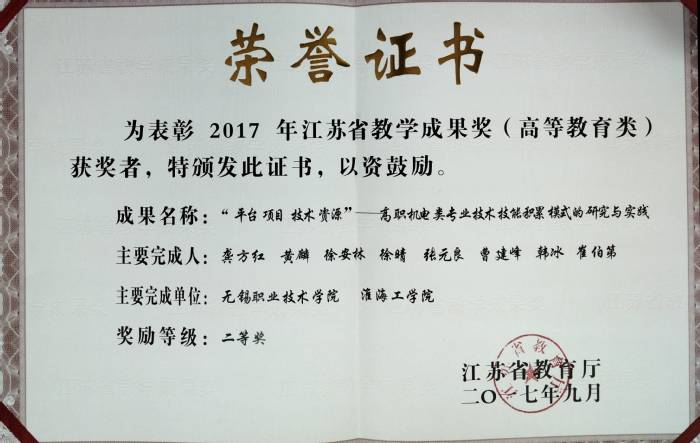 荣誉证书
为表彰 2017 年江苏省教学成果奖（高等教育类）
获奖者，特颁发此证书，以资鼓励。
成果名称：“平台 项目 技术资源”——高职机电类专业技术技能积累模式的研究与实践
主要完成人：龚方红 黄麟 徐安林 徐晴 张元良 曹建峰 韩冰 崔伯第
主要完成单位：无锡职业技术学院 淮海工学院
奖励等级：二等奖
江苏省教育厅
二〇一七年九月